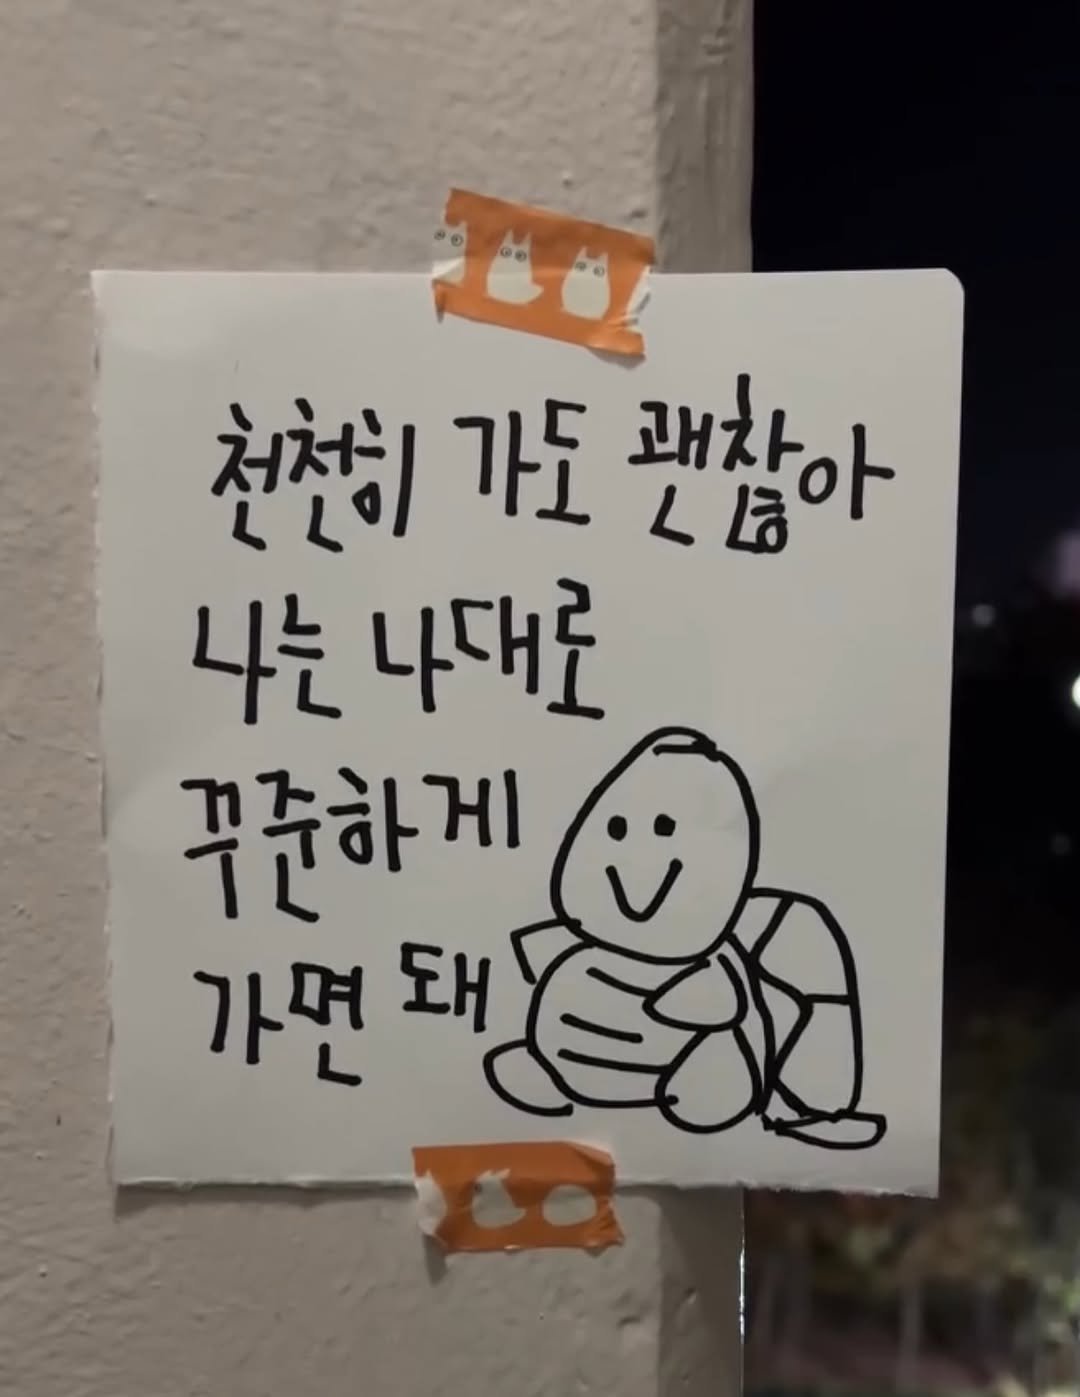 천천히 가도 괜찮아
나는 나대로
꾸준하게
가면 돼